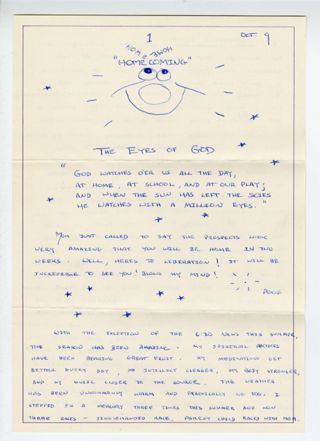 1
OCT 9
HOME & NOW
"HOMECOMING"
THE EYES OF GOD
"GOD WATCHES O'ER US ALL THE DAY,
AT HOME, AT SCHOOL, AND AT OUR PLAY;
AND WHEN THE SUN HAS LEFT THE SKIES
HE WATCHES WITH A MILLION EYES."
MOM JUST CALLED TO SAY THE PROSPECTS LOOK
VERY AMAZING THAT YOU WILL BE HOME IN TWO
WEEKS. WELL, HERE'S TO LIBERATION! IT WILL BE
INCREDIBLE TO SEE YOU! BLOWS MY MIND!
WITH THE EXCEPTION OF THE 6:30 NEWS THIS SUMMER,
THE SEASON HAS BEEN AMAZING. MY
HAVE BEEN BEARING GREAT FRUIT. MY MEDITATIONS GET
BETTER EVERY DAY, MY INTELLECT CLEARER, MY BODY STRONGER,
AND MY MUSIC CLOSER TO THE SOURCE. THE WEATHER
HAS BEEN UNCOMMONLY WARM AND PRACTICALLY NO FOG. I
STEPPED IN A THREE TIMES THIS SUMMER AND WON
THREE ONES - SINGLEHANDED RACE, PARENT CHILD RACES WITH MOM.